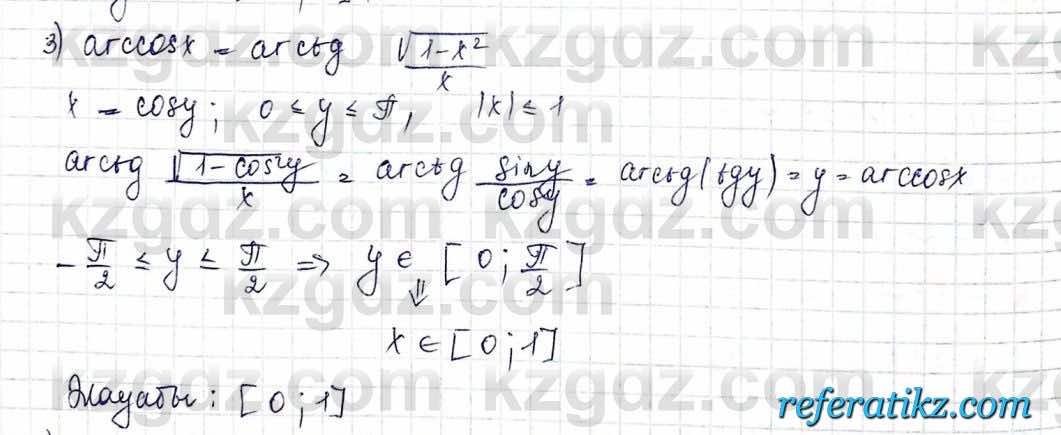 3) arccosx = arctg √(1-x²)/x
x = cosy; 0 ≤ y ≤ π, |x| ≤ 1
arctg √(1-cos²y)/x = arctg siny/cosy = arctg(tgy) = y = arccosx
-π/2 ≤ y ≤ π/2 ⇒ y ∈ [0; π/2]
⇓
x ∈ [0; 1]
Жауабы: [0; 1]
referatikz.com
kzgdz.com